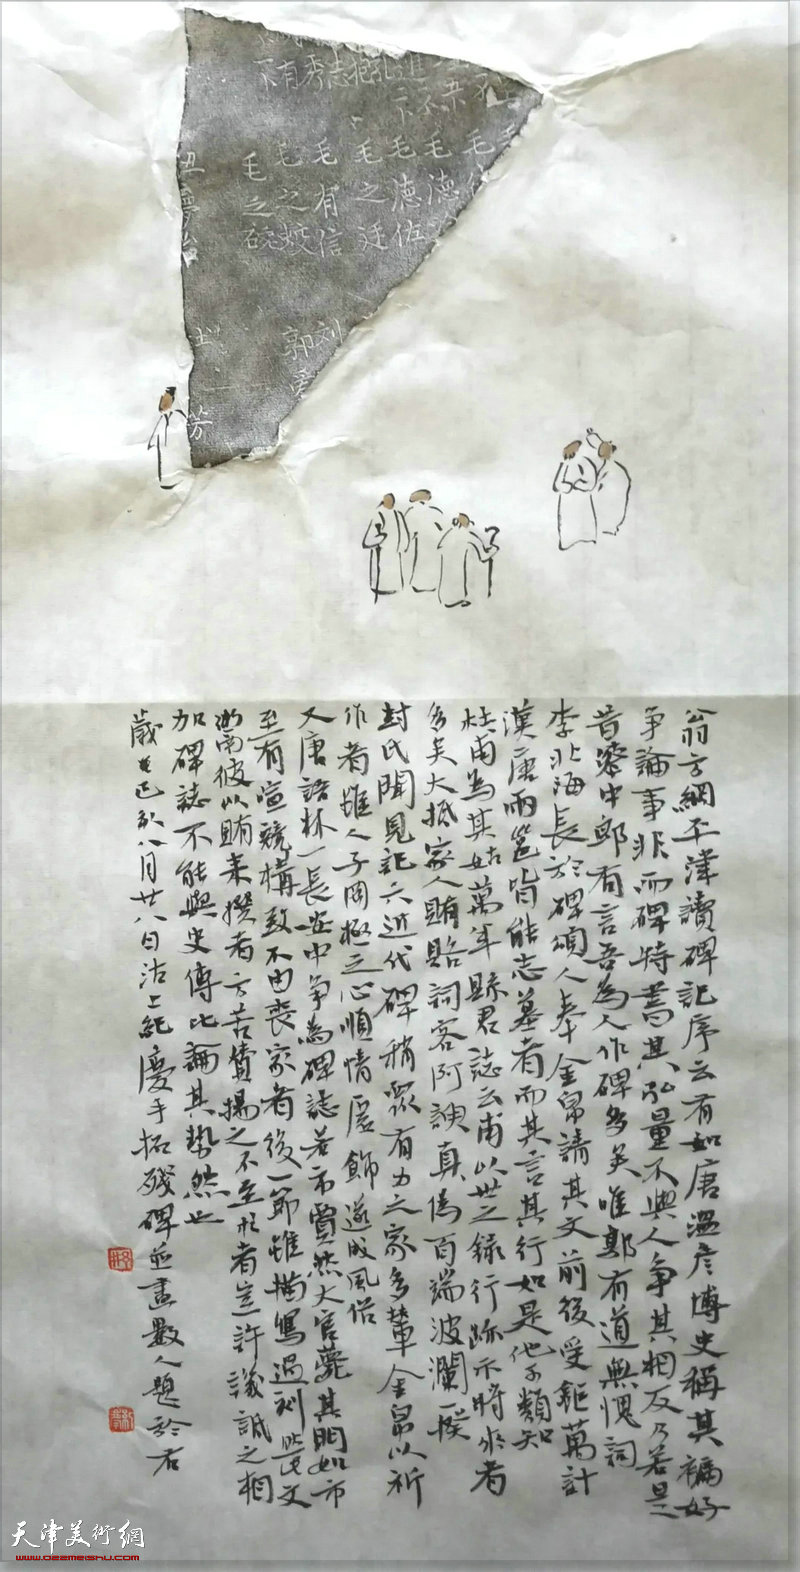 毛德佐
毛之廷
毛有信
毛之蛟
毛之
翁方綱平津讀碑記序云有如唐溫彥博史稱其褊好
爭論事非而碑特著其弘量不與人爭其相反乃若是
昔蔡中郎有言吾為人作碑多矣唯郭有道無愧詞
李北海長於碑頌人奉金帛請其文前後受鉅萬計
漢唐兩邕皆能志墓者而其言其行如是他可類知
杜甫為其姑萬年縣君誌云甫以世之錄行跡示將來者
多矣大抵家人賄賂詞客阿諛真偽百端波瀾一揆
封氏聞見記六近代碑稍眾有力之家多輦金帛以祈
作者雖人子罔極之心順情虛飾遂成風俗
又唐語林一長安中爭為碑誌若市賈然大官薨其門如市
至有喧競構致不由喪家者後一節雖描寫過刻此文
彼以賄來撰者方苦贊揚之不至於者豈許譏詆之相
加碑誌不能與史傳比論其勢然也
歲己亥八月廿八日沽上紀慶手拓殘碑並畫數人題於右
天津美術網
www.022meishu.com